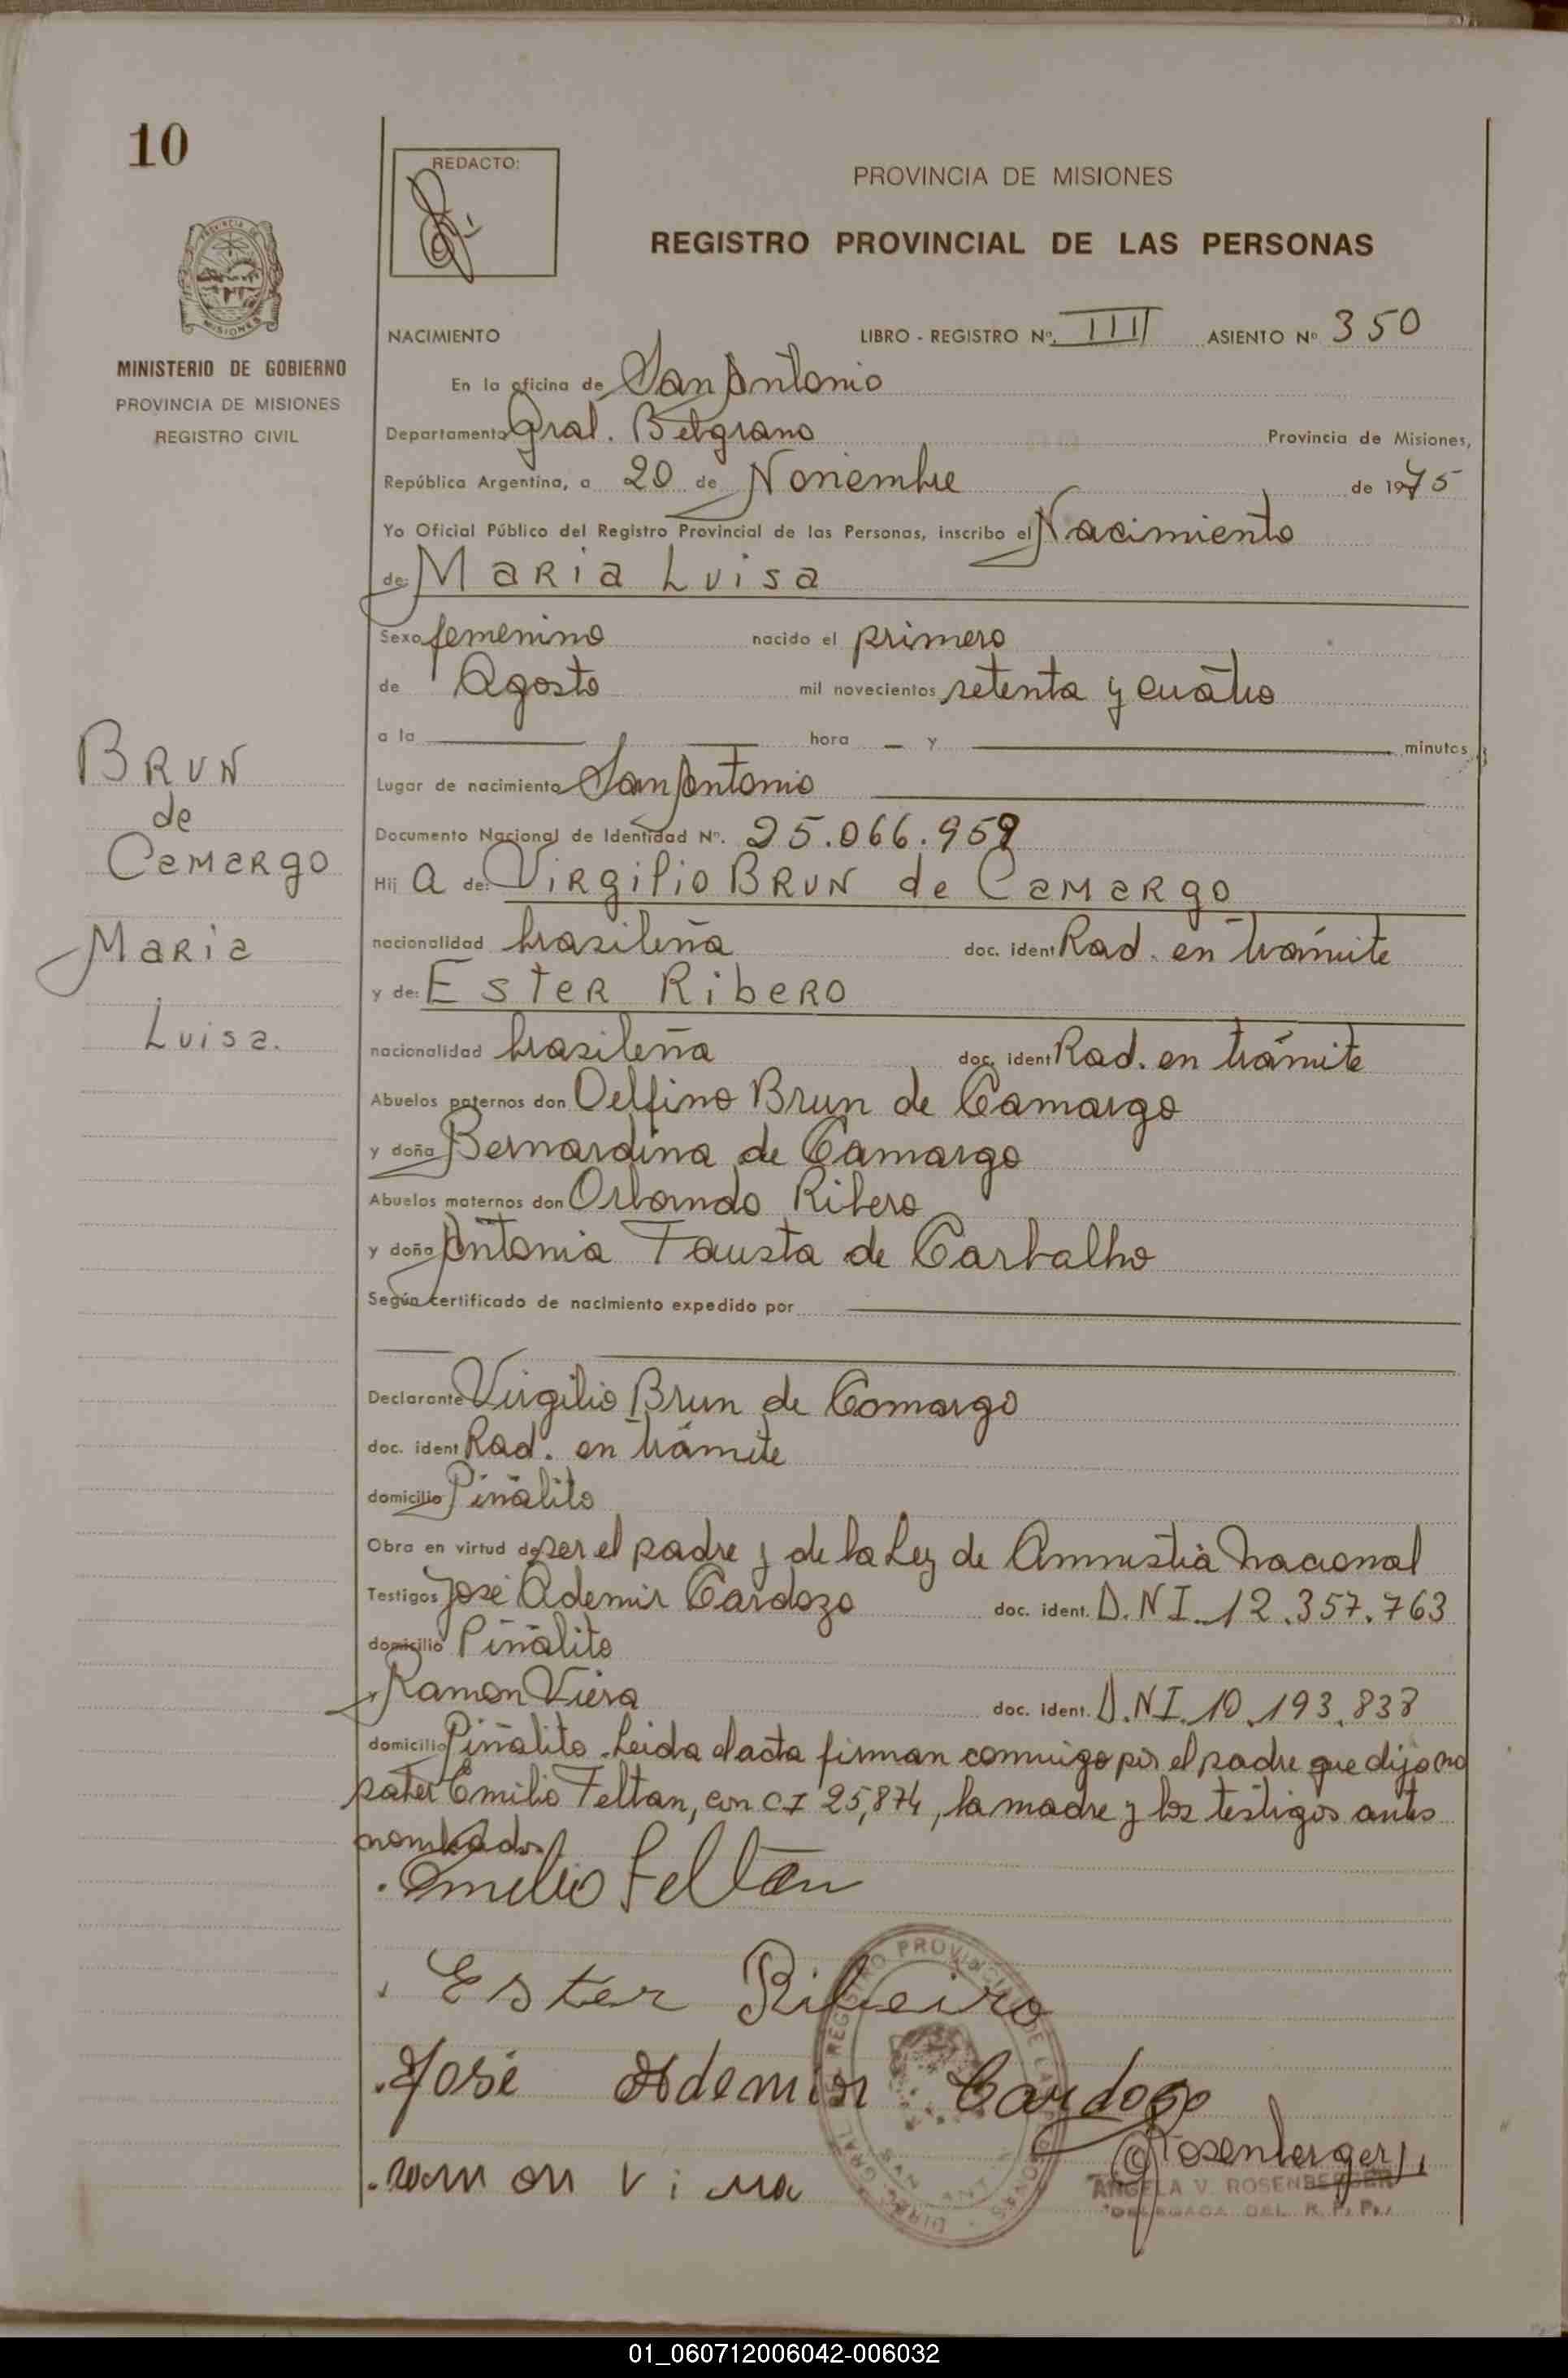 10
REDACTO:
PROVINCIA DE MISIONES
REGISTRO PROVINCIAL DE LAS PERSONAS
PROVINCIA DE MISIONES
MINISTERIO DE GOBIERNO
PROVINCIA DE MISIONES
REGISTRO CIVIL
NACIMIENTO LIBRO - REGISTRO Nº. III ASIENTO Nº 350
En la oficina de San Antonio
Departamento Gral. Belgrano Provincia de Misiones,
República Argentina, a 20 de Noviembre de 1975
Yo Oficial Público del Registro Provincial de las Personas, inscribo el Nacimiento
de: MARIA LUISA
Sexo femenino nacido el primero
de Agosto mil novecientos setenta y cuatro
a la hora y minutos
Lugar de nacimiento San Antonio
Documento Nacional de Identidad Nº. 25.066.959
Hij a de: VIRGILIO BRUN de CAMARGO
nacionalidad brasileña doc. ident Rad. en trámite
y de: ESTER RIBERO
nacionalidad brasileña doc. ident Rad. en trámite
Abuelos paternos don Delfino Brun de Camargo
y doña Bernardina de Camargo
Abuelos maternos don Orlando Ribero
y doña Antonia Fausta de Carbalho
Según certificado de nacimiento expedido por
Declarante Virgilio Brun de Camargo
doc. ident Rad. en trámite
domicilio Piñalito
Obra en virtud de ser el padre y de la Ley de Amnistia Nacional
Testigos José Ademir Cardozo doc. ident. D.N.I. 12.357.763
domicilio Piñalito
Ramon Viera doc. ident. D.N.I. 10.193.838
domicilio Piñalito. Leida el acta firman conmigo por el padre que dijo no
saber Emilio Feltan, con CI 25,874, la madre y los testigos antes
nombrados
Emilio Feltan
Ester Ribeiro
José Ademir Cardozo
Rosenberger
ramon
ANGELA V. ROSENBERGER
DELEGADA DEL R. P. P.
BRUN
de
CAMARGO
MARIA
LUISA.
01_060712006042-006032